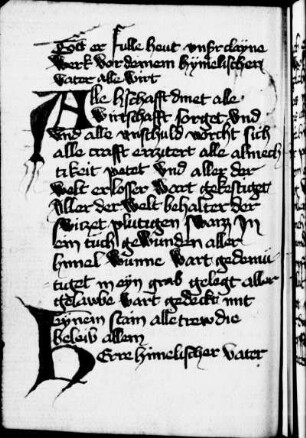 Gott er fulle heut unsr dayne
werk vor deinem hymelischen
vater alle wirt
Alle hschafft dinet alle
wirtschafft sorget und
und alle unschuld vorcht sich
alle crafft erzitert alle almech
tikeit petet und aller der
welt erlosser wart gekestiget
Aller der welt behalter der
switzet plutigen swayz In
ein tuch gewunden aller
himel wunne wart gedemu
tiget in eyn grab gelegt aller
gelawbe wart gedeckt mit
eynem stain alle trew die
beleib allein
Herre himelischer vater